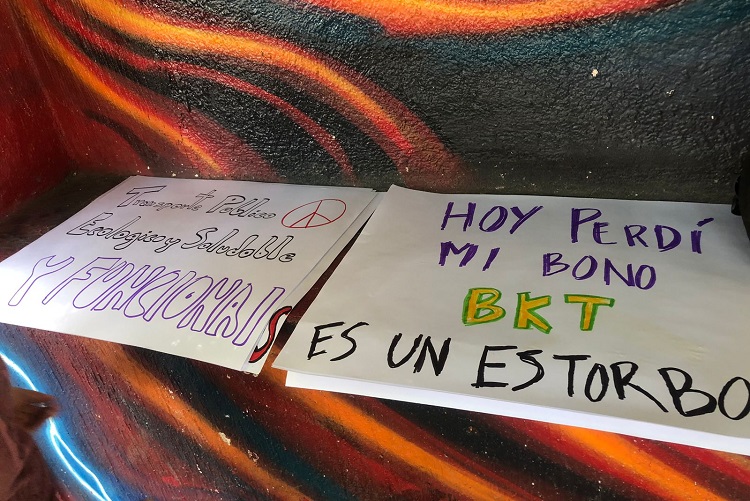 Transporte Publico
Ecologico y Saludable
Y FUNCIONAlS
HOY PERDÍ
MI BONO
BKT
ES UN ESTORBO